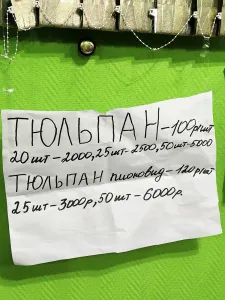 ТЮЛЬПАН-100р/шт
20шт-2000, 25шт-2500, 50шт-5000
ТЮЛЬПАН пионовид-120р/шт
25шт-3000р, 50шт-6000р.